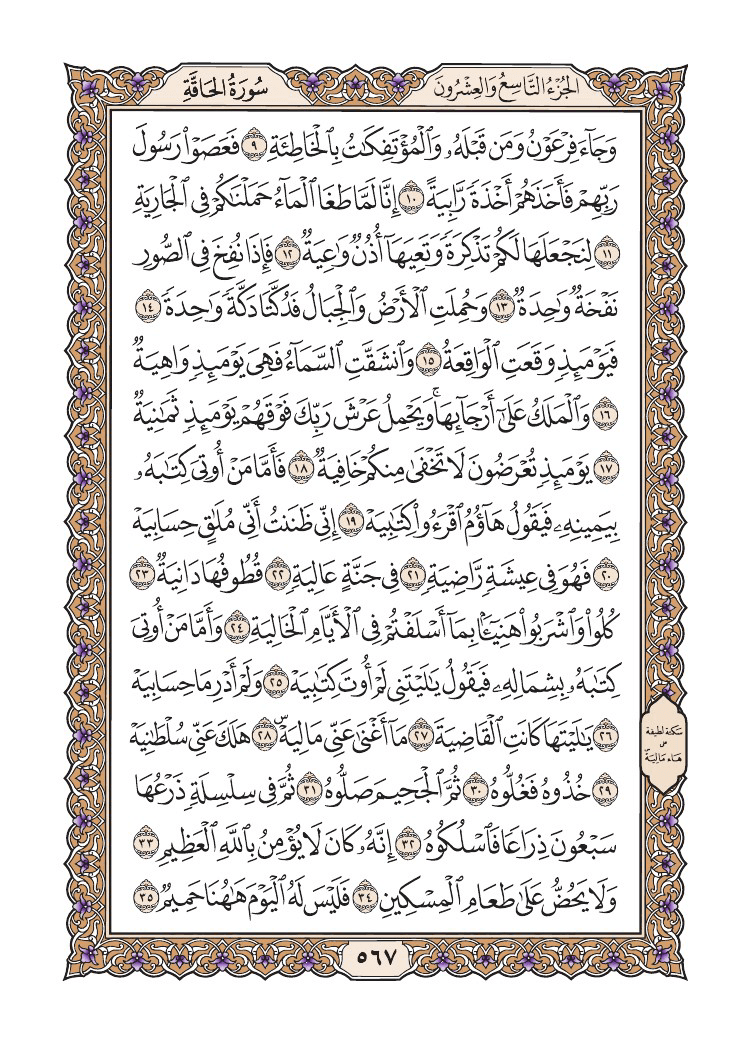 الجُزْءُ التَّاسِعُ وَالعِشْرُونَ
سُورَةُ الحَاقَّةِ
وَجَآءَ فِرْعَوْنُ وَمَن قَبْلَهُۥ وَٱلْمُؤْتَفِكَٰتُ بِٱلْخَاطِئَةِ ٩ فَعَصَوْا۟ رَسُولَ
رَبِّهِمْ فَأَخَذَهُمْ أَخْذَةً رَّابِيَةً ١٠ إِنَّا لَمَّا طَغَا ٱلْمَآءُ حَمَلْنَٰكُمْ فِى ٱلْجَارِيَةِ
١١ لِنَجْعَلَهَا لَكُمْ تَذْكِرَةً وَتَعِيَهَآ أُذُنٌ وَٰعِيَةٌ ١٢ فَإِذَا نُفِخَ فِى ٱلصُّورِ
نَفْخَةٌ وَٰحِدَةٌ ١٣ وَحُمِلَتِ ٱلْأَرْضُ وَٱلْجِبَالُ فَدُكَّتَا دَكَّةً وَٰحِدَةً ١٤
فَيَوْمَئِذٍ وَقَعَتِ ٱلْوَاقِعَةُ ١٥ وَٱنشَقَّتِ ٱلسَّمَآءُ فَهِىَ يَوْمَئِذٍ وَاهِيَةٌ
١٦ وَٱلْمَلَكُ عَلَىٰٓ أَرْجَآئِهَا ۚ وَيَحْمِلُ عَرْشَ رَبِّكَ فَوْقَهُمْ يَوْمَئِذٍ ثَمَٰنِيَةٌ
١٧ يَوْمَئِذٍ تُعْرَضُونَ لَا تَخْفَىٰ مِنكُمْ خَافِيَةٌ ١٨ فَأَمَّا مَنْ أُوتِىَ كِتَٰبَهُۥ
بِيَمِينِهِۦ فَيَقُولُ هَآؤُمُ ٱقْرَءُوا۟ كِتَٰبِيَهْ ١٩ إِنِّى ظَنَنتُ أَنِّى مُلَٰقٍ حِسَابِيَهْ
٢٠ فَهُوَ فِى عِيشَةٍ رَّاضِيَةٍ ٢١ فِى جَنَّةٍ عَالِيَةٍ ٢٢ قُطُوفُهَا دَانِيَةٌ ٢٣
كُلُوا۟ وَٱشْرَبُوا۟ هَنِيٓـًٔۢا بِمَآ أَسْلَفْتُمْ فِى ٱلْأَيَّامِ ٱلْخَالِيَةِ ٢٤ وَأَمَّا مَنْ أُوتِىَ
كِتَٰبَهُۥ بِشِمَالِهِۦ فَيَقُولُ يَٰلَيْتَنِى لَمْ أُوتَ كِتَٰبِيَهْ ٢٥ وَلَمْ أَدْرِ مَا حِسَابِيَهْ
٢٦ يَٰلَيْتَهَا كَانَتِ ٱلْقَاضِيَةَ ٢٧ مَآ أَغْنَىٰ عَنِّى مَالِيَهْ ۜ ٢٨ هَلَكَ عَنِّى سُلْطَٰنِيَهْ
٢٩ خُذُوهُ فَغُلُّوهُ ٣٠ ثُمَّ ٱلْجَحِيمَ صَلُّوهُ ٣١ ثُمَّ فِى سِلْسِلَةٍ ذَرْعُهَا
سَبْعُونَ ذِرَاعًا فَٱسْلُكُوهُ ٣٢ إِنَّهُۥ كَانَ لَا يُؤْمِنُ بِٱللَّهِ ٱلْعَظِيمِ ٣٣
وَلَا يَحُضُّ عَلَىٰ طَعَامِ ٱلْمِسْكِينِ ٣٤ فَلَيْسَ لَهُ ٱلْيَوْمَ هَٰهُنَا حَمِيمٌ ٣٥
سكتة لطيفة
على
هَاء مَالِيَهْ ۜ
٥٦٧